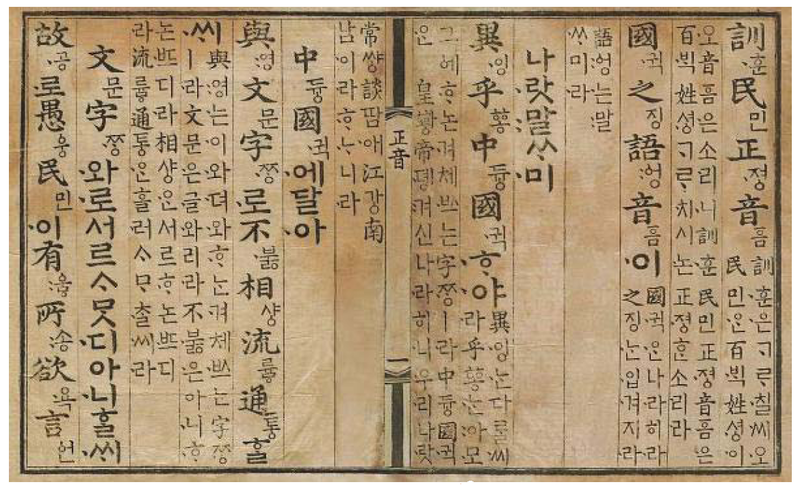 訓훈民민正져ᇰ音ᅙᅳᆷ訓훈은ᄀᆞᄅᆞ칠씨오
民민ᄋᆞᆫ百ᄇᆡᆨ姓셔ᇰ이
오音ᅙᅳᆷ은소리니訓훈民민正져ᇰ音ᅙᅳᆷ은
百ᄇᆡᆨ姓셔ᇰᄀᆞᄅᆞ치시논正져ᇰᄒᆞᆫ소리라
國귁之징語ᅌᅥᆼ音ᅙᅳᆷ이國귁ᄋᆞᆫ나라히라
之징ᄂᆞᆫ입겨지라
語ᅌᅥᆼ는말
ᄊᆞ미라
나랏말ᄊᆞ미
異잉乎ᅘᅩᆼ中듀ᇰ國귁ᄒᆞ야異잉ᄂᆞᆫ다ᄅᆞᆯ씨
라乎ᅘᅩᆼᄂᆞᆫ아모
그ᅌᅦᄒᆞ논겨체ᄡᅳ는字ᄍᆞᆼㅣ라中듀ᇰ國귁
ᄋᆞᆫ皇ᅘᅪᇰ帝뎽겨신나라히니우리나랏
正音
一
常쌰ᇰ談땀애江가ᇰ南
남이라ᄒᆞᄂᆞ니라
中듀ᇰ國귁에달아
與영文문字ᄍᆞᆼ로不부ᇙ相샤ᇰ流류ᇢ通토ᇰᄒᆞᆯ
ᄊᆡ與영는이와뎌와ᄒᆞ는겨체ᄡᅳ는字ᄍᆞᆼ
ㅣ라文문은글와리라不부ᇙ은아니ᄒᆞ
논ᄠᅳ디라相샤ᇰᄋᆞᆫ서르ᄒᆞ논ᄠᅳ디
라流류ᇢ通토ᇰᄋᆞᆫ흘러ᄉᆞᄆᆞᄎᆞᆯ씨라
文문字ᄍᆞᆼ와로서르ᄉᆞᄆᆞᆺ디아니ᄒᆞᆯᄊᆡ
故공로愚ᅌᅮᆼ民민이有우ᇢ所송欲욕言언